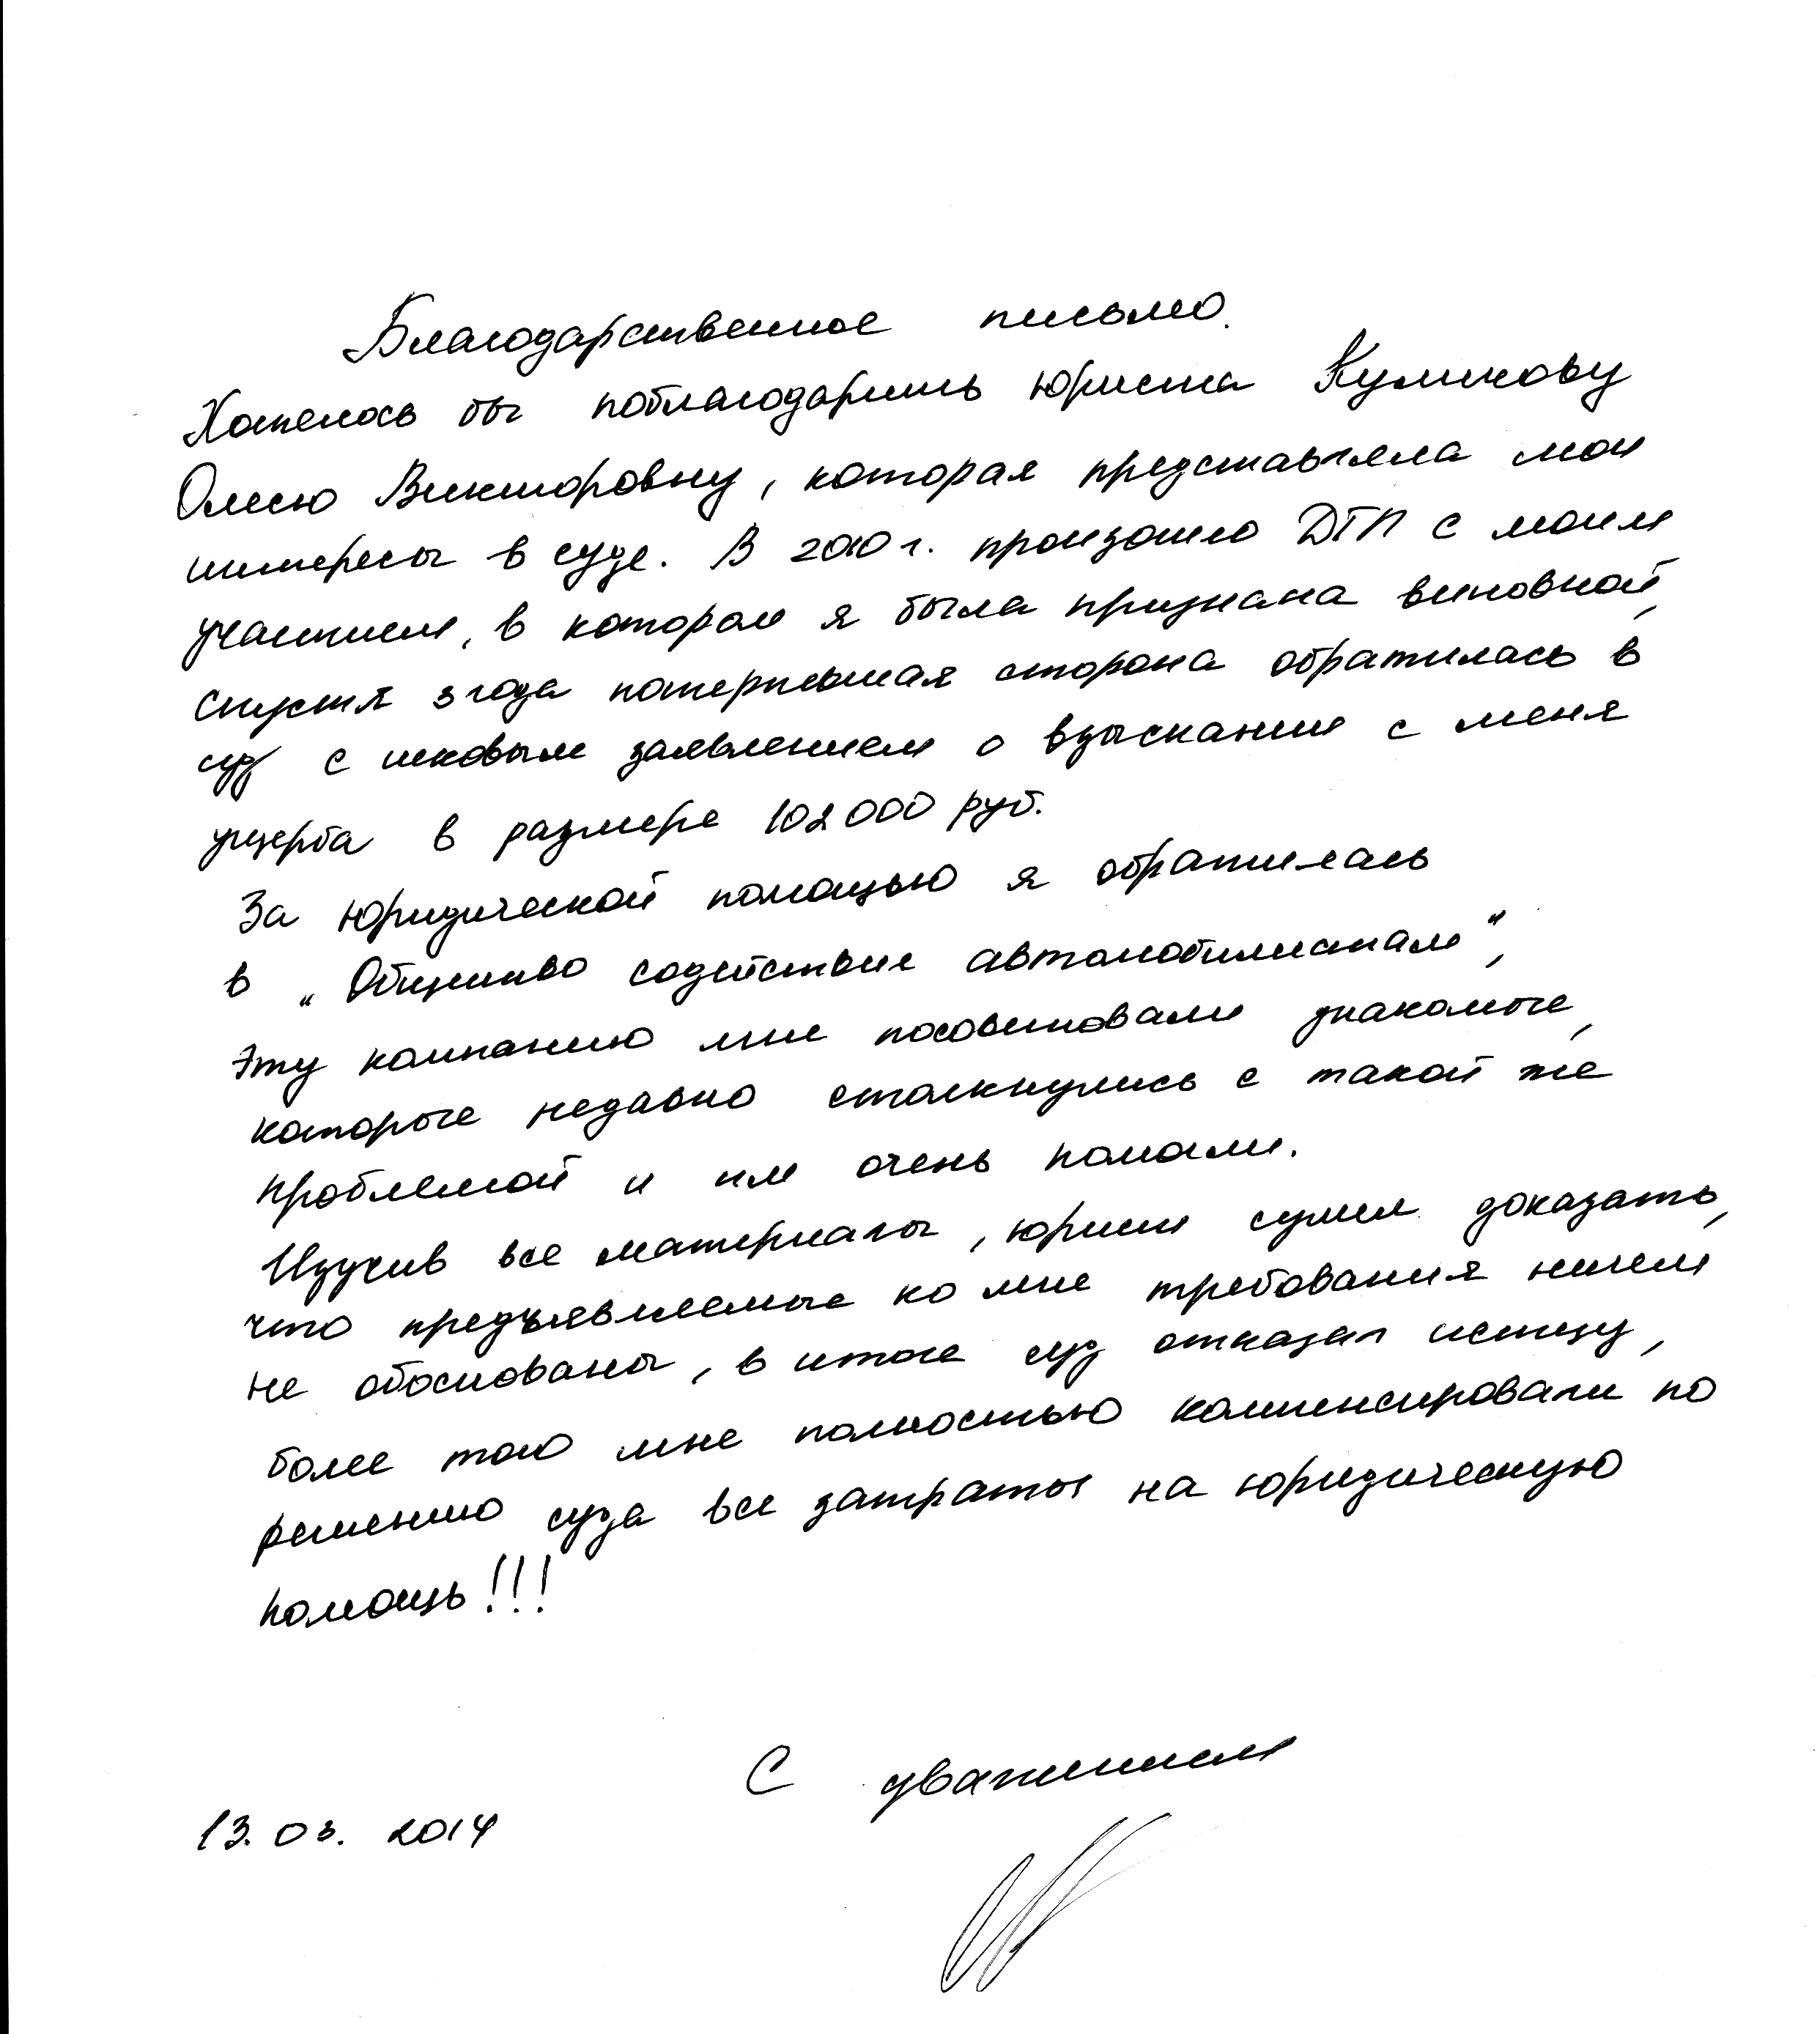 Благодарственное письмо.
Хотелось бы поблагодарить юриста Куликову
Олесю Викторовну, которая представляла мои
интересы в суде. В 2010 г. произошло ДТП с моим
участием, в котором я была признана виновной,
спустя 3 года потерпевшая сторона обратилась в
суд с исковым заявлением о взыскании с меня
ущерба в размере 102 000 руб.
За юридической помощью я обратилась
в „Общество содействие автомобилистам“,
Эту компанию мне посоветовали знакомые,
которые недавно столкнулись с такой же
проблемой и им очень помогли.
Изучив все материалы, юрист сумел доказать,
что предъявляемые ко мне требования ничем
не обоснованы, в итоге суд отказал истцу,
более того мне полностью компенсировали по
решению суда все затраты на юридическую
помощь!!!
С уважением
13.03.2014